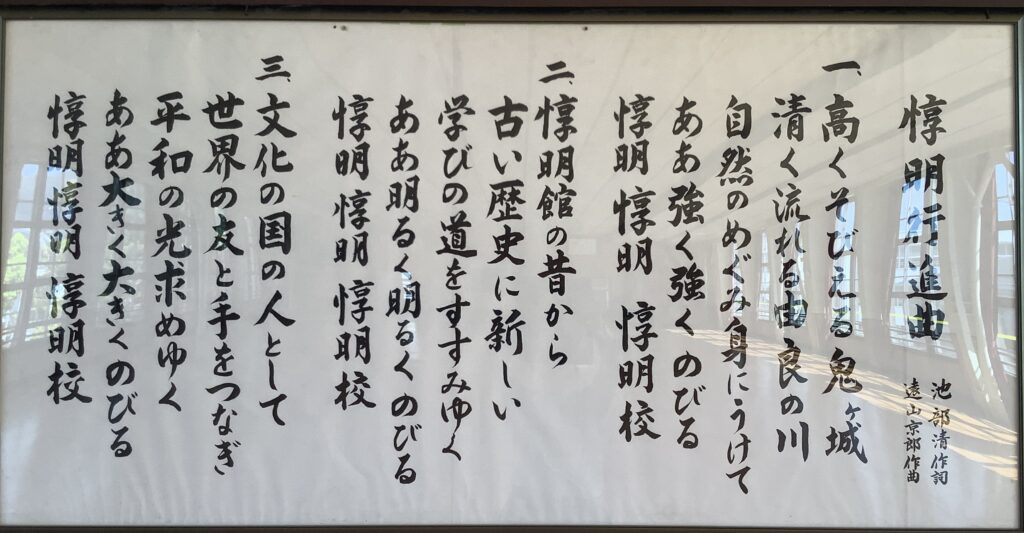 惇明行進曲
池部清作詞
遠山京郎作曲
一、高くそびえる鬼ヶ城
清く流れる由良の川
自然のめぐみ身にうけて
ああ強く強くのびる
惇明 惇明 惇明校
二、惇明館の昔から
古い歴史に新しい
学びの道をすすみゆく
ああ明るく明るくのびる
惇明 惇明 惇明校
三、文化の国の人として
世界の友と手をつなぎ
平和の光求めゆく
ああ大きく大きくのびる
惇明 惇明 惇明校